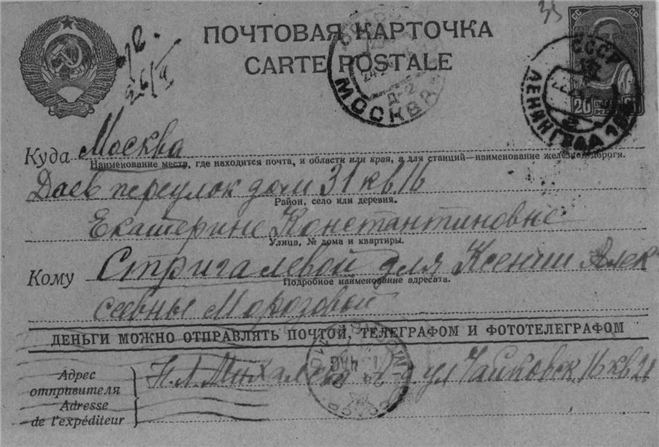 ПОЧТОВАЯ КАРТОЧКА
CARTE POSTALE
МОСКВА
Д-2
СССР
ЛЕНИНГРАД
20
Куда Москва
Наименование места, где находится почта, и области или края, а для станций—наименование железной дороги.
Даев переулок дом 31 кв 16
Район, село или деревня.
Екатерине Константиновне
Улица, № дома и квартиры.
Кому Стригалевой для Ксении Алек
Подробное наименование адресата.
сеевны Морозовой
ДЕНЬГИ МОЖНО ОТПРАВЛЯТЬ ПОЧТОЙ, ТЕЛЕГРАФОМ И ФОТОТЕЛЕГРАФОМ
Адрес
отправителя
Adresse
de l'expéditeur
ул Чайковск 16 кв 21